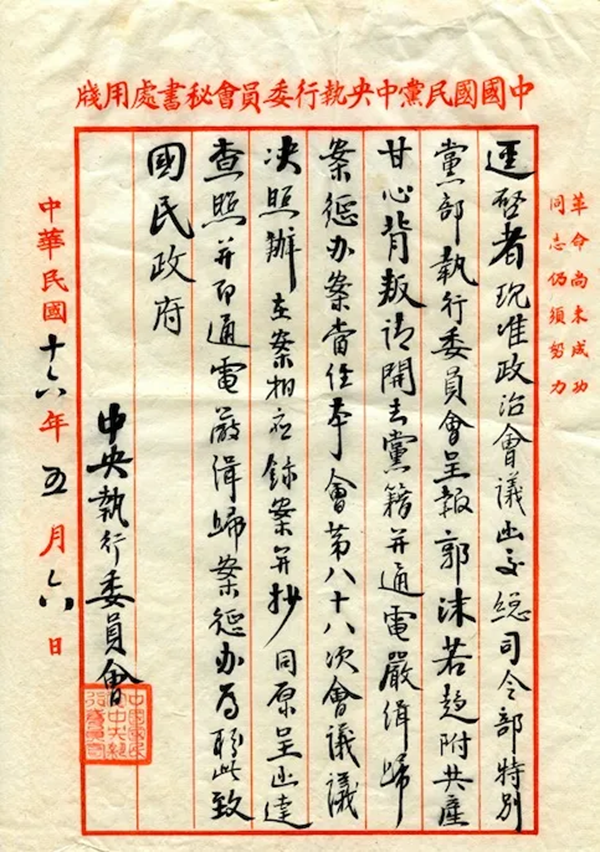 中國國民黨中央執行委員會秘書處用牋
革命尚未成功
同志仍須努力
逕啓者現准政治會議函交總司令部特別
黨部執行委員會呈報郭沫若趨附共產
甘心背叛請開去黨籍并通電嚴緝歸
案懲办案當經本會第八十八次會議議
決照辦在案相應録案并抄同原呈函達
查照并即通電嚴緝歸案懲办爲荷此致
國民政府
中央執行委員會
中華民國十六年五月六日